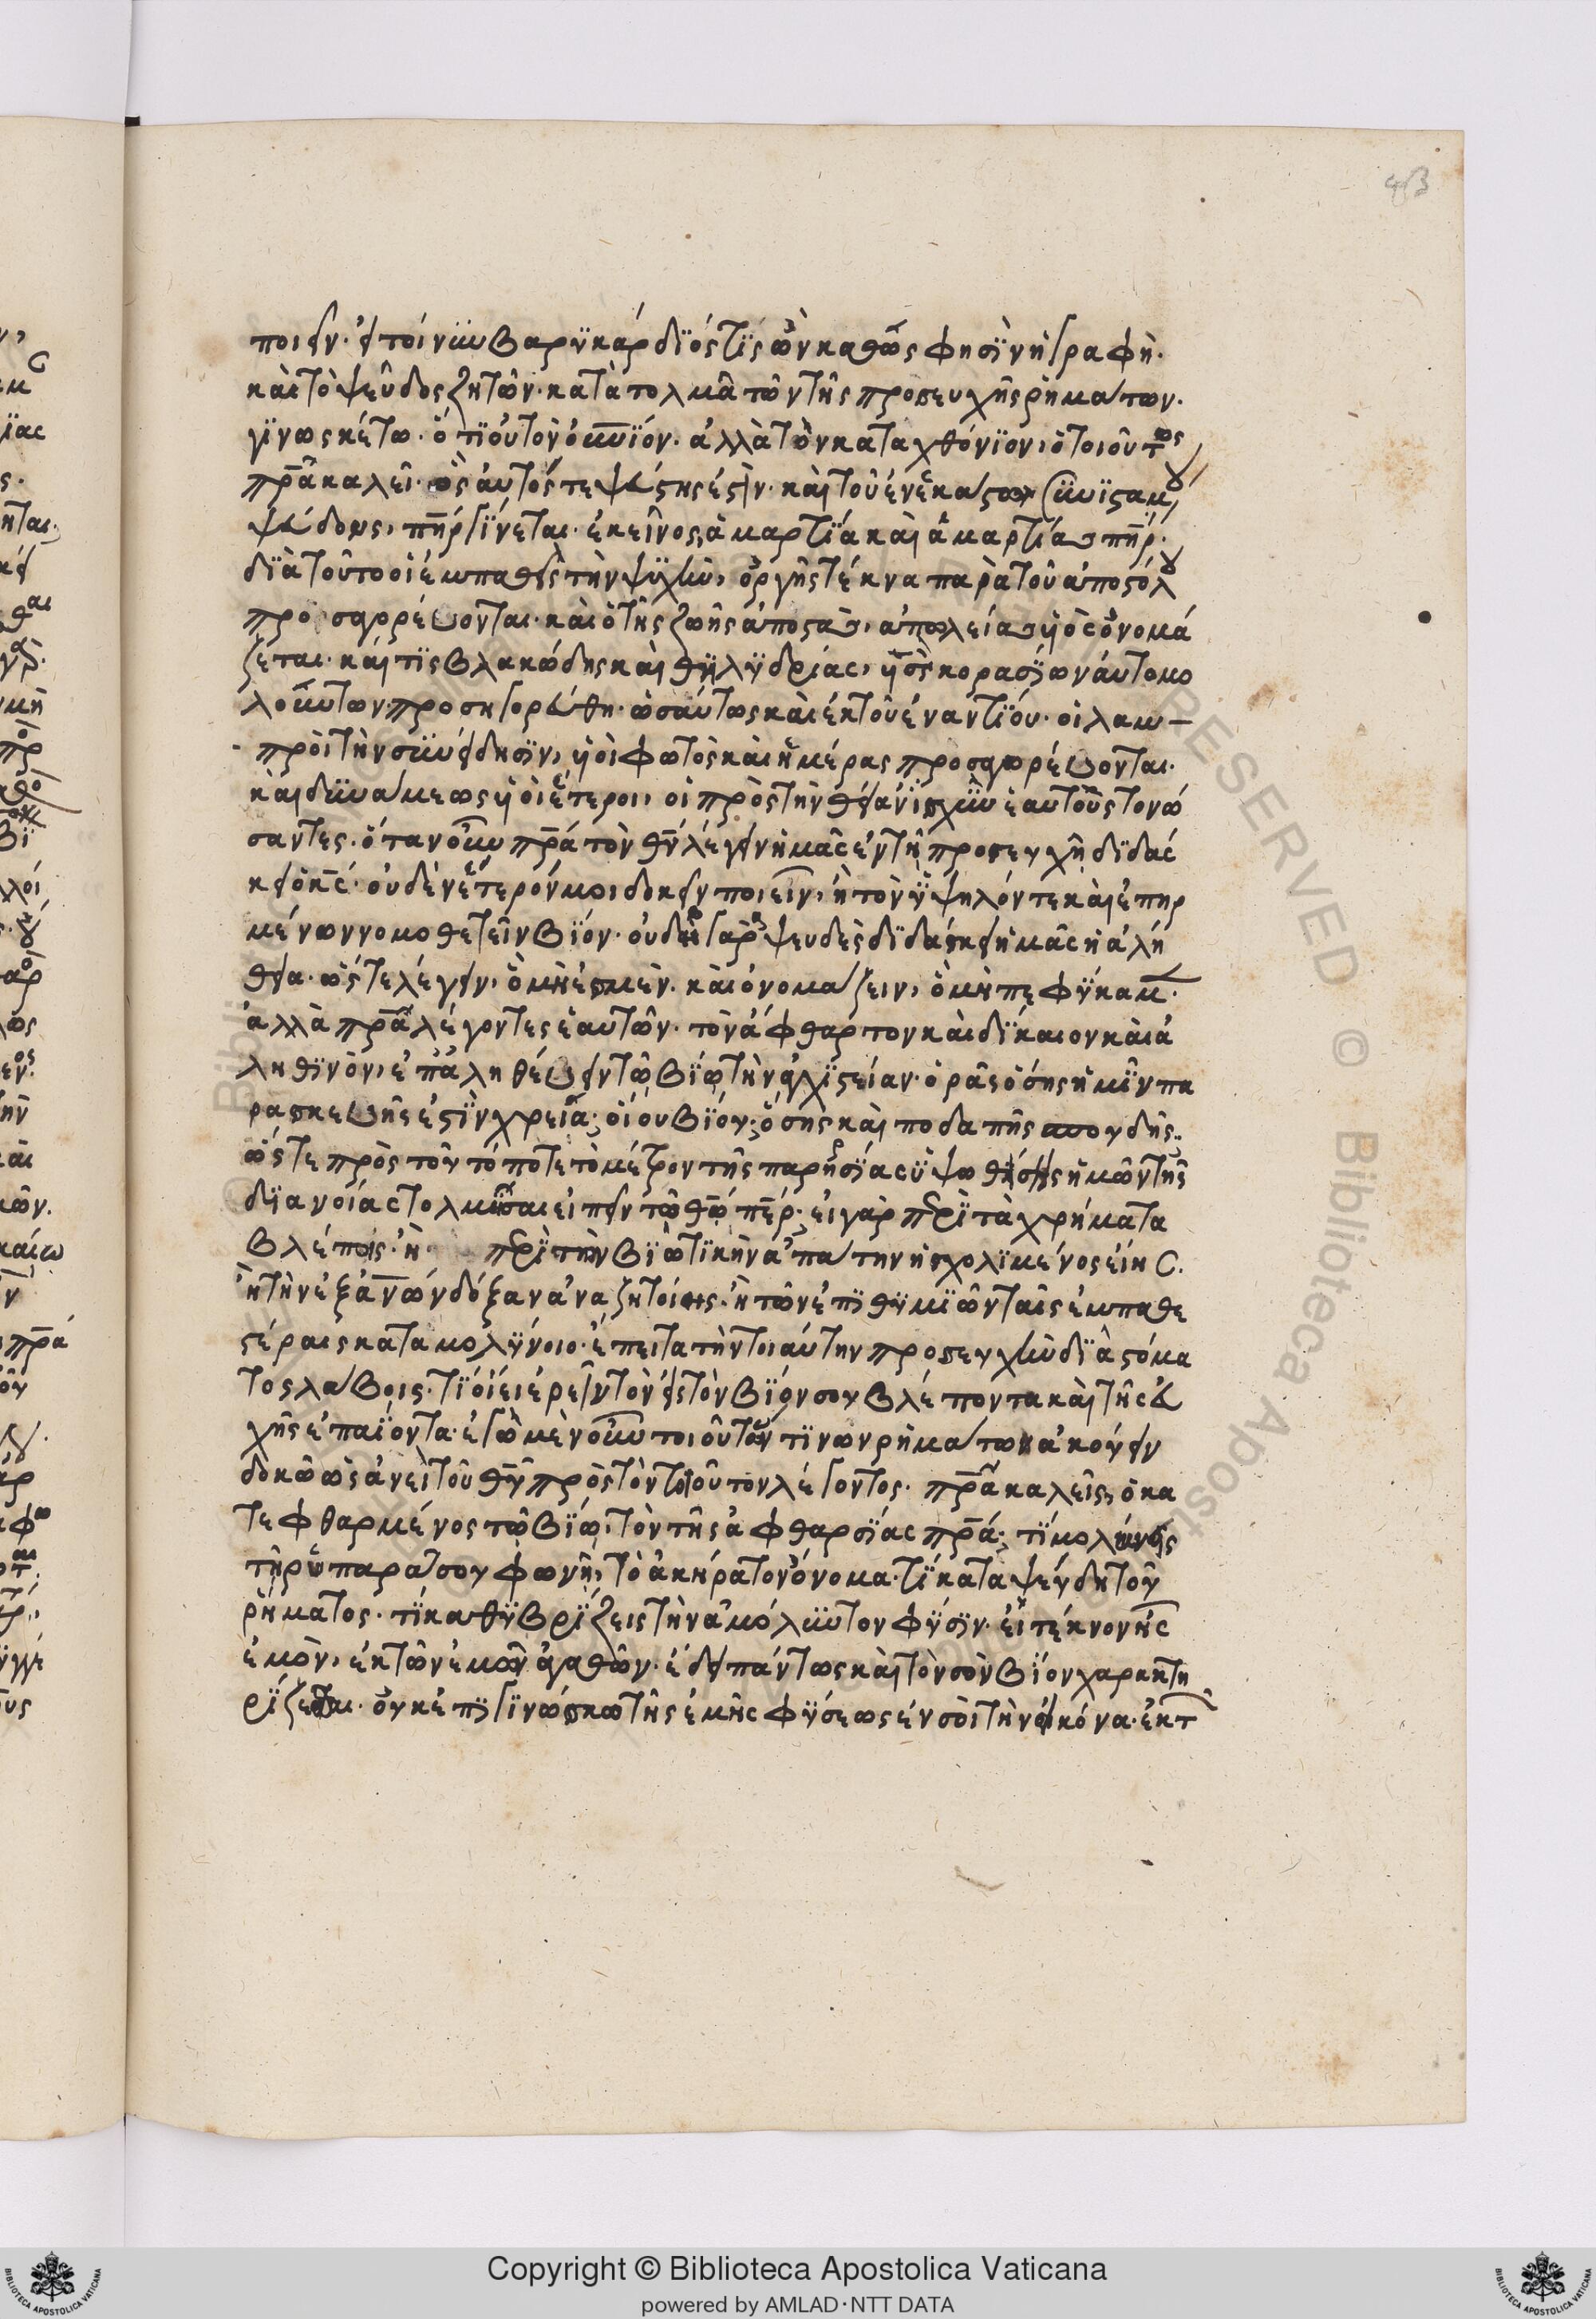 ποιεῖν. εἰ τοίνυν βαρυκάρδιός τις ὢν καθὼς φησὶν ἡ γραφὴ.
καὶ τὸ ψεῦδος ζητῶν. κατατολμᾶ τῶν τῆς προσευχῆς ῥημάτων.
γινωσκέτω. ὅτι οὐ τὸν οὐνιόν. ἀλλὰ τὸν καταχθόνιον, ὁ τοιοῦτος
πρα καλεῖ. ὃς αὐτός τε ψεύστης ἐστὶν. καὶ τοῦ ἐν ἑκάστω συνισταμένου
ψεύδους, πηρ γίνεται. ἐκεῖνος ἁμαρτία καὶ ἁμαρτίας πηρ.
διὰ τοῦτο οἱ ἐμπαθεῖς τὴν ψυχὴν, ὀργῆς τέκνα παρὰ τοῦ ἀποστόλου
προσαγορεύονται. καὶ ὁ τῆς ζωῆς ἀποστὰς, ἀπωλείας υἱὸς ὀνομά
ζεται. καί τις βλακώδης καὶ θηλυδρίας, υἱὸς κορασίων αὐτομο
λούντων προσηγορεύθη. ὡσαύτως καὶ ἐκ τοῦ ἐναντίου. οἱ λαμ
προὶ τὴν συνείδησιν, υἱοὶ φωτὸς καὶ ἡμέρας προσαγορεύονται.
καὶ δυνάμεως υἱοὶ ἕτεροι, οἱ πρὸς τὴν θείαν ἰσχὺν ἑαυτοὺς τονώ
σαντες. ὅταν οὖν πρα τὸν θν λέγειν ἡμᾶς ἐν τῆ προσευχῆ διδάσ
κει ὁ κς. οὐδὲν ἕτερόν μοι δοκεῖν ποιεῖν, ἢ τὸν ὑψηλόν τε καὶ ἐπηρ
μένων νομοθετεῖν βίον. οὐδὲ γὰρ ψευδὲς διδάσκει ἡμᾶς ἡ ἀλή
θεια. ὥστε λέγειν, ὃ μὴ ἐσμὲν. καὶ ὀνομάζειν, ὃ μὴ πεφύκαμεν.
ἀλλὰ πρα λέγοντες ἑαυτῶν. τὸν ἄφθαρτον καὶ δίκαιον καὶ ἀ
ληθινὸν, ἐπ ἀληθεύειν τῶ βίω τὴν ἀγχιστείαν. ὁρᾶς ὅσης ἡμῖν πα
ρασκευῆς ἐστὶν χρεία; οἵου βίου; ὅσης καὶ ποδαπῆς σπουδῆς.
ὥστε πρὸς τοῦτό ποτε τὸ μέτρον τῆς παρρησίας ὑψωθείσης ἡμῶν τῆς
διανοίας τολμῆσαι εἰπεῖν τῶ θῶ πέρ. εἰ γὰρ περὶ τὰ χρήματα
βλέποις. ἢ περὶ τὴν βιωτικὴν ἀπάτην ἠσχολιμένος εἴης.
ἢ τὴν ἐξ ανων δόξαν ἀναζητοίης. ἢ τῶν ἐπιθυμιῶν ταῖς ἐμπαθε
στέραις καταμολύνοιο. ἔπειτα τὴν τοιαύτην προσευχὴν διὰ στόμα
τος λάβοις. τί οἴει ἐρεῖν τὸν εἰς τὸν βίον σου βλέποντα καὶ τῆς εὐ
χῆς ἐπαΐοντα. ἐγὼ μὲν οὖν τοιούτων τινων ρημάτων ἀκούειν
δοκῶ ὡς ἂν εἰ τοῦ θῦ πρὸς τὸν τοιοῦτον λέγοντος. πρα καλεῖς, ὁ κα
τεφθαρμένος τῶ βίω, τὸν τῆς ἀφθαρσίας πρά; τί μολύνεις
τῆ ρυπαρᾶ σου φωνῆ, τὸ ἀκήρατον ὄνομα. τί καταψεύδη τοῦ
ῥήματος. τί καθυβρίζεις τὴν ἀμόλυντον φύσιν. εἰ τέκνον ἦς
ἐμὸν, ἐκ τῶν ἐμῶν ἀγαθῶν. ἔδει πάντως καὶ τὸν σὸν βίον χαρακτη
ρίζεσθαι. οὐκ ἐπιγινώσκω τῆς ἐμῆς φύσεως ἐν σοὶ τὴν εἰκόνα. ἐκ τ